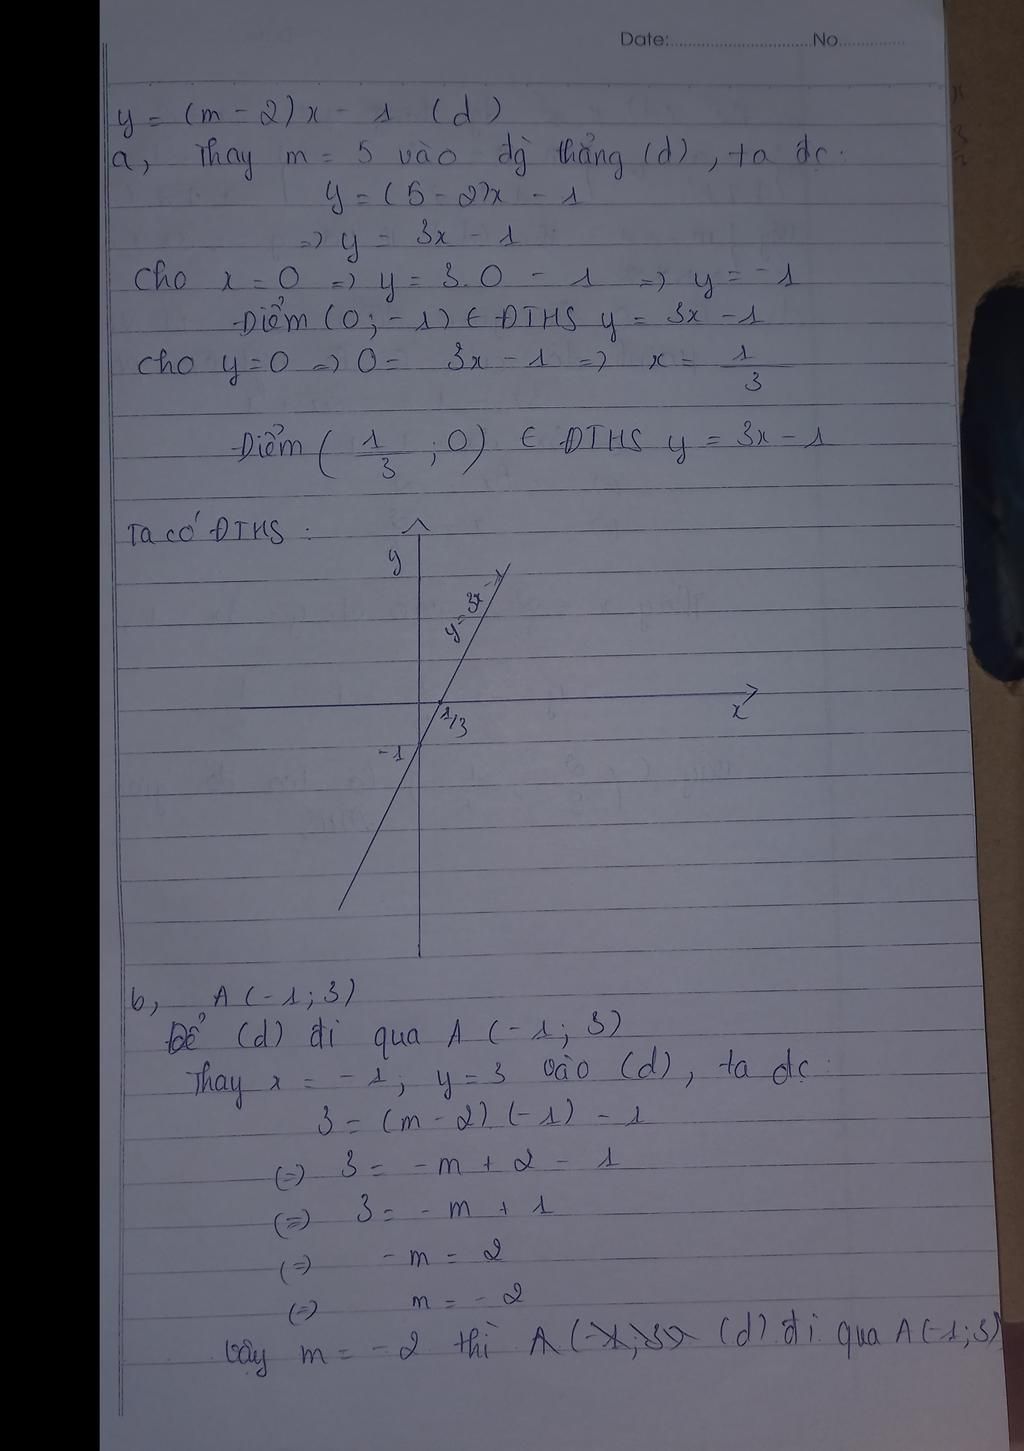 Date:..............................No...............
y = (m - 2)x - 1 (d)
a, Thay m = 5 vào đg thẳng (d), ta đc:
y = (5 - 2)x - 1
=> y = 3x - 1
Cho x = 0 => y = 3.0 - 1 => y = -1
Điểm (0; -1) ∈ ĐTHS y = 3x - 1
Cho y = 0 => 0 = 3x - 1 => x = 1/3
Điểm (1/3; 0) ∈ ĐTHS y = 3x - 1
Ta có ĐTHS :
y
y = 3x -
x
1/3
-1
b, A (-1; 3)
Để (d) đi qua A (-1; 3)
Thay x = -1; y = 3 vào (d), ta đc:
3 = (m - 2) (-1) - 1
(=) 3 = -m + 2 - 1
(=) 3 = -m + 1
(=) -m = 2
(=) m = -2
Vậy m = -2 thì A (-1; 3) (d) đi qua A (-1; 3)